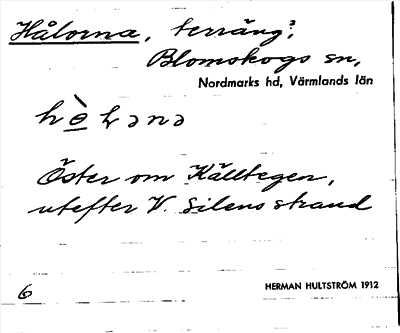 Hålorna, terräng?,
Blomskogs sn,
Nordmarks hd, Värmlands län
Öster om Källtegen,
utefter V. Silens strand
6
HERMAN HULTSTRÖM 1912